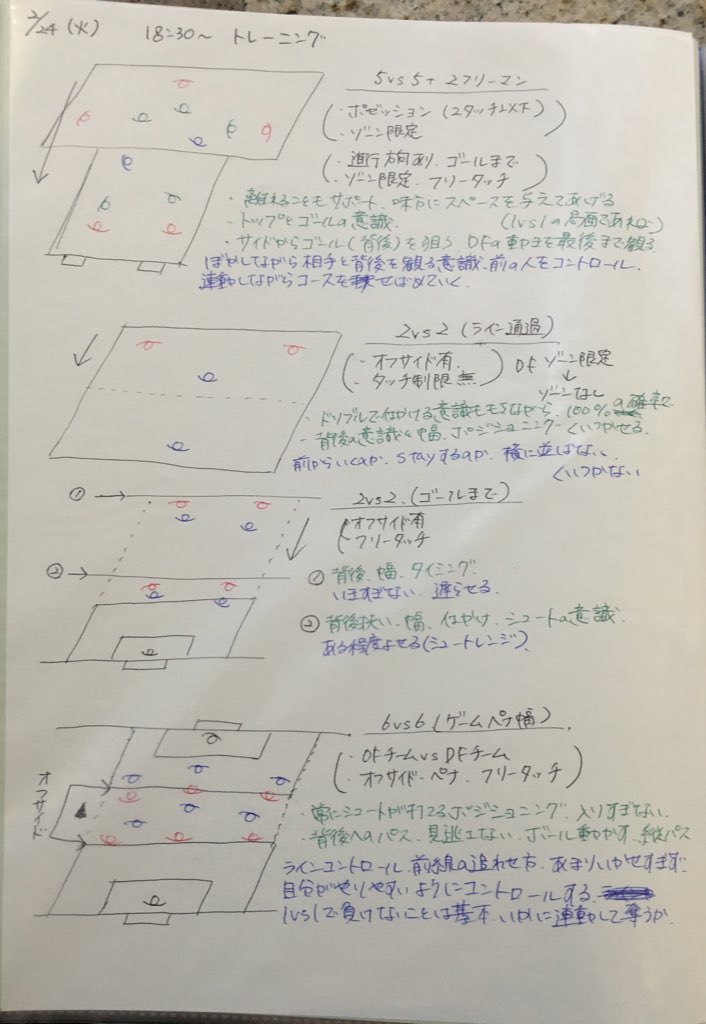 2/24 (火) 18:30〜 トレーニング
5vs5+2フリーマン
・ポゼッション(2タッチ以下)
・ゾーン限定
・進行方向あり、ゴールまで
・ゾーン限定、フリータッチ
・離れることもサポート、味方にスペースを与えてあげる
・トップとゴールの意識 (1vs1の局面であれば)
・サイドからゴール(背後)を狙う、DFの動きを最後まで観る
ぼかしながら相手と背後を観る意識、前の人をコントロール
連動しながらコースをせばめていく
2vs2(ライン通過)
・オフサイド有
・タッチ制限無
DFゾーン限定
↓
ゾーンなし
・ドリブルで仕掛ける意識もちながら、100%の確率で
・背後の意識と幅、ポジショニング くいつかせる
前からいくのか、stayするのか、横に並ばない
くいつかない
①→
2vs2(ゴールまで)
オフサイド有
フリータッチ
②→
① 背後、幅、タイミング
いきすぎない 遅らせる
② 背後狭い、幅、仕かけ、シュートの意識
ある程度よせる(シュートレンジ)
6vs6(ゲームペナ幅)
・OFチームvsDFチーム
・オフサイド・ペナ、フリータッチ
オフサイド
・常にシュートが打てるポジショニング、入りすぎない
・背後へのパス、見逃さない、ボール動かす、縦パス
ラインコントロール、前線の追わせ方、あまりいかせすぎず
自分がやりやすいようにコントロールする
1vs1で負けないことは基本、いかに連動して奪うか